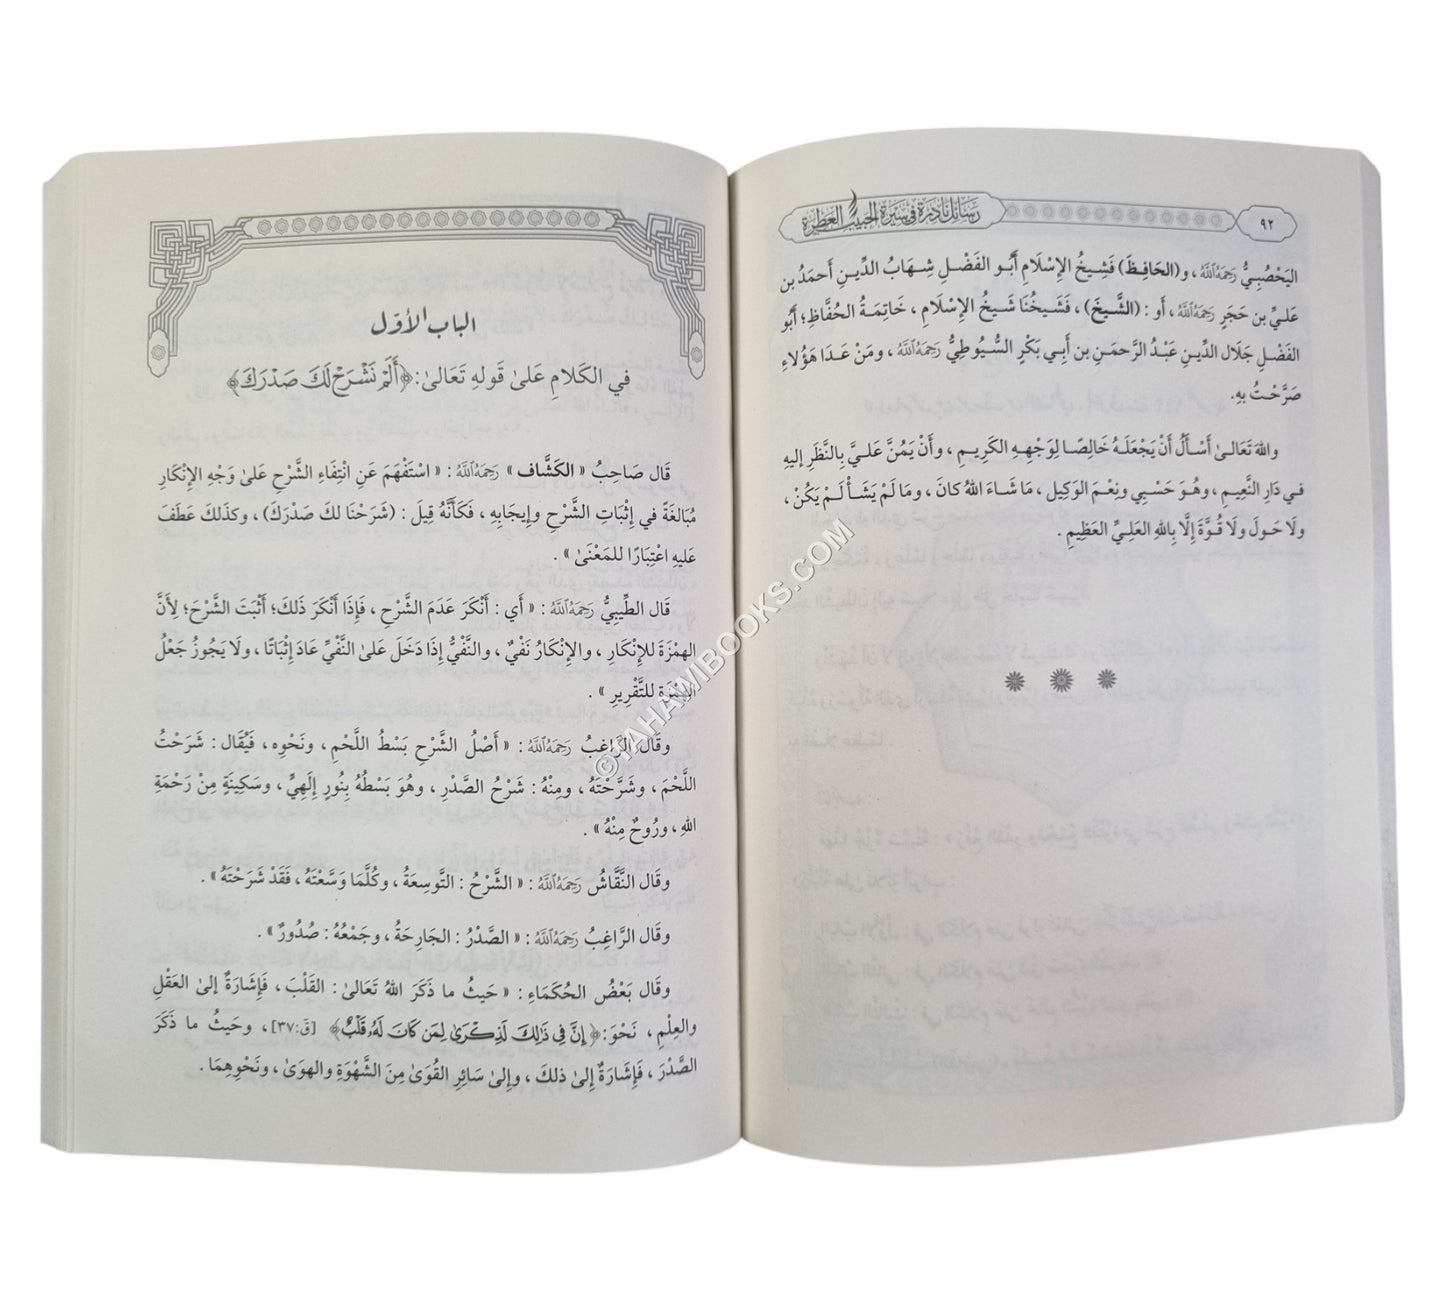 ٩٢
رسائل نادرة في سيرة الحبيب العطرة
اليَحْصُبِيُّ رَحِمَهُ ٱللَّهُ ، و(الحَافِظَ) فَشِيخُ الإِسْلَامِ أَبُو الفَضْلِ شِهَابُ الدِّينِ أَحمَدُ بن
عَلِيِّ بن حَجَرٍ رَحِمَهُ ٱللَّهُ ، أَو : (الشَّيخَ) ، فَشَيخُنَا شَيخُ الإِسْلَامِ ، خَاتِمَةُ الحُفَّاظِ ؛ أَبُو
الفَضْلِ جَلَال الدِّينِ عَبْدُ الرَّحمَنِ بن أَبِي بَكْرٍ السُّيُوطِيُّ رَحِمَهُ ٱللَّهُ ، ومَنْ عَدَا هَؤُلاءِ
صَرَّحْتُ بِهِ.
واللهَ تَعَالىٰ أَسْأَلُ أَنْ يَجْعَلَهُ خَالِصًا لِوَجْهِهِ الكَرِيمِ ، وأَنْ يَمُنَّ عَلَيَّ بِالنَّظَرِ إِليهِ
في دَارِ النَّعِيمِ ، وهُوَ حَسْبِي ونِعْمَ الوَكِيل ، مَا شَاءَ اللهُ كانَ ، ومَا لَمْ يَشَأْ لَمْ يَكُنْ ،
ولَا حَولَ ولَا قُوَّةَ إِلَّا بِاللهِ العَلِيِّ العَظِيمِ .
الباب الأوّل
في الكَلامِ عَلىٰ قَولِهِ تَعَالىٰ: ﴿أَلَمْ نَشْرَحْ لَكَ صَدْرَكَ﴾
قَال صَاحِبُ « الكَشَّاف » رَحِمَهُ ٱللَّهُ : « اسْتَفْهَمَ عَنِ انْتِفَاءِ الشَّرْحِ عَلىٰ وَجْهِ الإِنْكَارِ
مُبَالَغَةً في إِثْبَاتِ الشَّرْحِ وإِيجَابِهِ ، فَكَأَنَّهُ قِيلَ : (شَرَحْنَا لكَ صَدْرَكَ) ، وكَذلكَ عَطَفَ
عَليهِ اعْتِبَارًا للمَعْنَىٰ » .
قَال الطِّيبِيُّ رَحِمَهُ ٱللَّهُ : « أَي : أَنْكَرَ عَدَمَ الشَّرْحِ ، فَإِذَا أَنْكَرَ ذَلكَ؛ أَثْبَتَ الشَّرْحَ؛ لِأَنَّ
الهمْزَةَ للإِنْكَارِ ، والإِنْكَارُ نَفْيٌ ، والنَّفْيُ إِذَا دَخَلَ عَلىٰ النَّفْيِ عَادَ إِثْبَاتًا ، ولَا يَجُوزُ جَعْلُ
الهمْزَةِ للتَّقْرِيرِ » .
وقَال الرَّاغِبُ رَحِمَهُ ٱللَّهُ : « أَصْلُ الشَّرْحِ بَسْطُ اللَّحْمِ ، ونَحْوِهِ ، فَيُقَال : شَرَحْتُ
اللَّحْمَ ، وشَرَّحْتَهُ ، ومِنْهُ : شَرْحُ الصَّدْرِ ، وهُوَ بَسْطُهُ بِنُورٍ إِلَهِيٍّ ، وسَكِينَةٍ مِنْ رَحْمَةِ
اللهِ ، ورُوحٌ مِنْهُ » .
وقَال النَّقَّاشُ رَحِمَهُ ٱللَّهُ : « الشَّرْحُ : التَّوسِعَةُ ، وكُلَّمَا وَسَّعْتَهُ ، فَقَدْ شَرَحْتَهُ » .
وقَال الرَّاغِبُ رَحِمَهُ ٱللَّهُ : « الصَّدْرُ : الجَارِحَةُ ، وجَمْعُهُ : صُدُورٌ » .
وقَال بَعْضُ الحُكَمَاءِ : « حَيثُ ما ذَكَرَ اللهُ تَعَالىٰ : القَلْبَ ، فَإِشَارَةٌ إِلىٰ العَقْلِ
والعِلْمِ ، نَحْوَ : ﴿ إِنَّ فِي ذَٰلِكَ لَذِكْرَىٰ لِمَن كَانَ لَهُۥ قَلْبٌ ﴾ [قَ:٣٧] ، وحَيثُ ما ذَكَرَ
الصَّدْرَ ، فَإِشَارَةٌ إِلىٰ ذلكَ ، وإِلىٰ سَائِرِ القُوَىٰ مِنَ الشَّهْوَةِ والهوَىٰ ، ونَحْوِهِمَا .
©TAHAWIBOOKS.COM